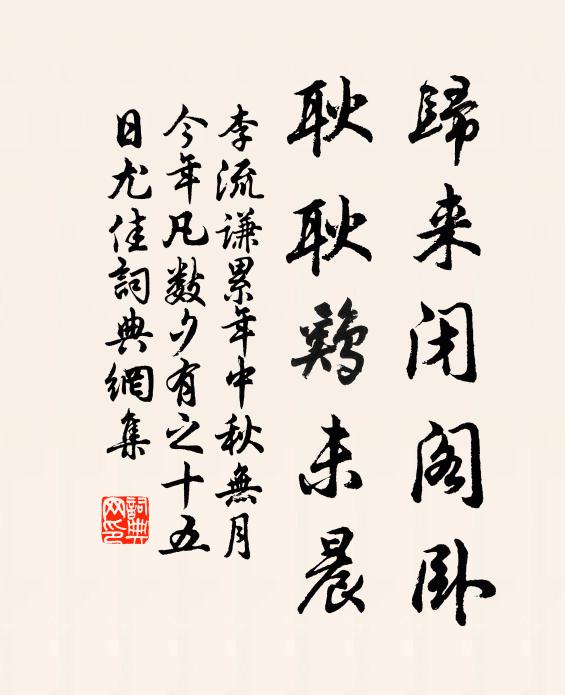 歸来闭阁卧
耿耿鷄未晨
李流谦累年中秋無月
今年凡数夕有之十五
日尤佳詞典網集
詞典網印